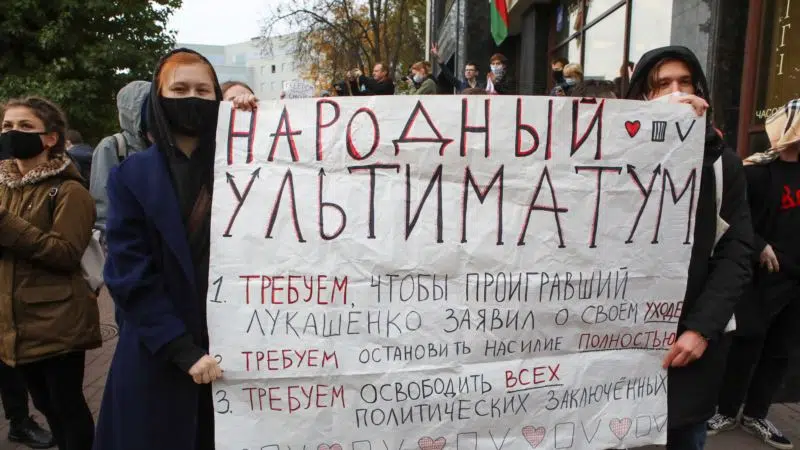 НАРОДНЫЙ
УЛЬТИМАТУМ
1. ТРЕБУЕМ, ЧТОБЫ ПРОИГРАВШИЙ
ЛУКАШЕНКО ЗАЯВИЛ О СВОЕМ УХОДЕ
2 ТРЕБУЕМ ОСТАНОВИТЬ НАСИЛИЕ ПОЛНОСТЬЮ
3. ТРЕБУЕМ ОСВОБОДИТЬ ВСЕХ
ПОЛИТИЧЕСКИХ ЗАКЛЮЧЁННЫХ